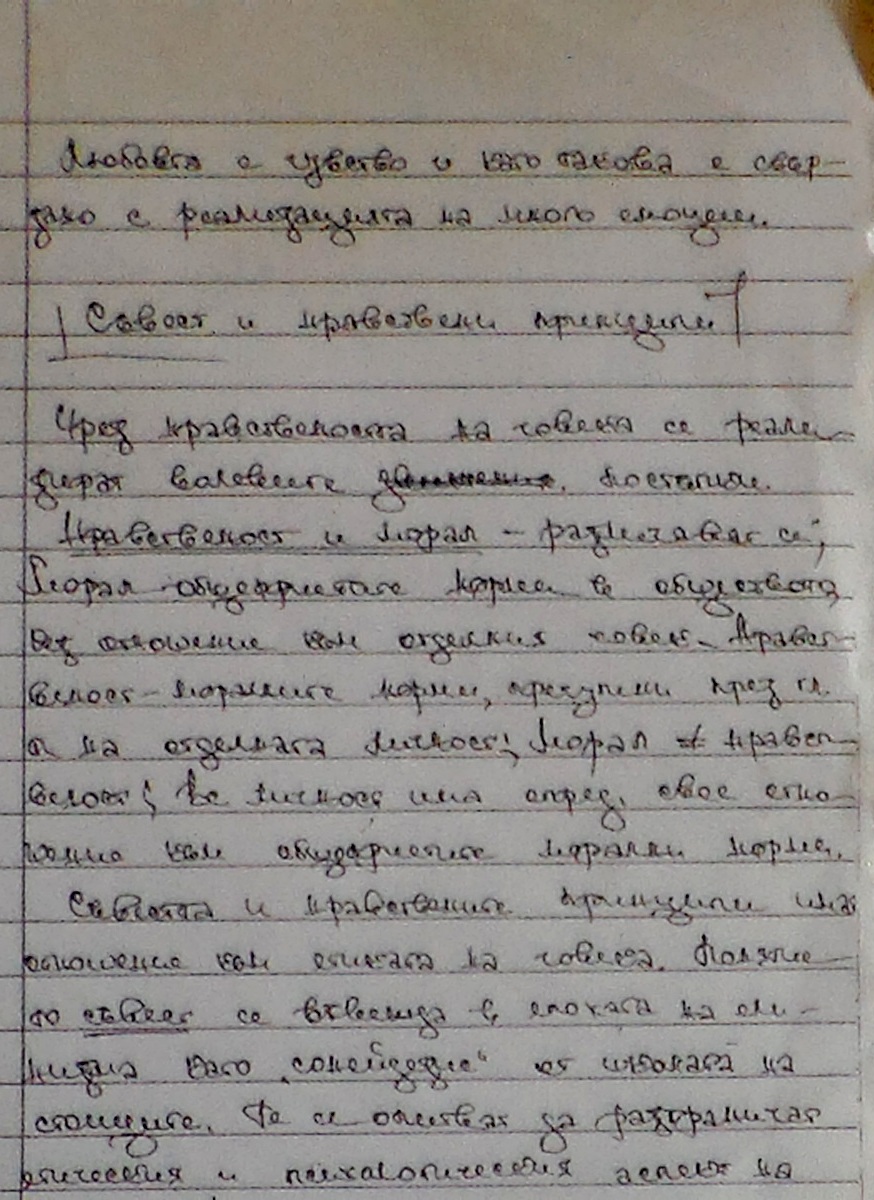 Любовта е чувство и като такова е свър-
зано с реализацията на много емоции.
Съвест и нравствени принципи
Чрез нравствеността на човека се реали-
зират волевите постъпки.
Нравственост и морал – различават се;
Морал – общоприетите норми в обществото,
без отношение към отделния човек. Нравст-
веност – моралните норми, пречупени през гл.
т. на отделната личност! Морал ≠ нравст-
веност! Вс. личност има опред. свое отно-
шение към общоприетите морални норми.
Съвестта и нравствените принципи имат
отношение към етиката на човека. Поняти-
то съвест се въвежда в епохата на ели-
низма като „сонейдезис“ от школата на
стоиците. Те се опитват да разграничат
етическия и психологическия аспект на